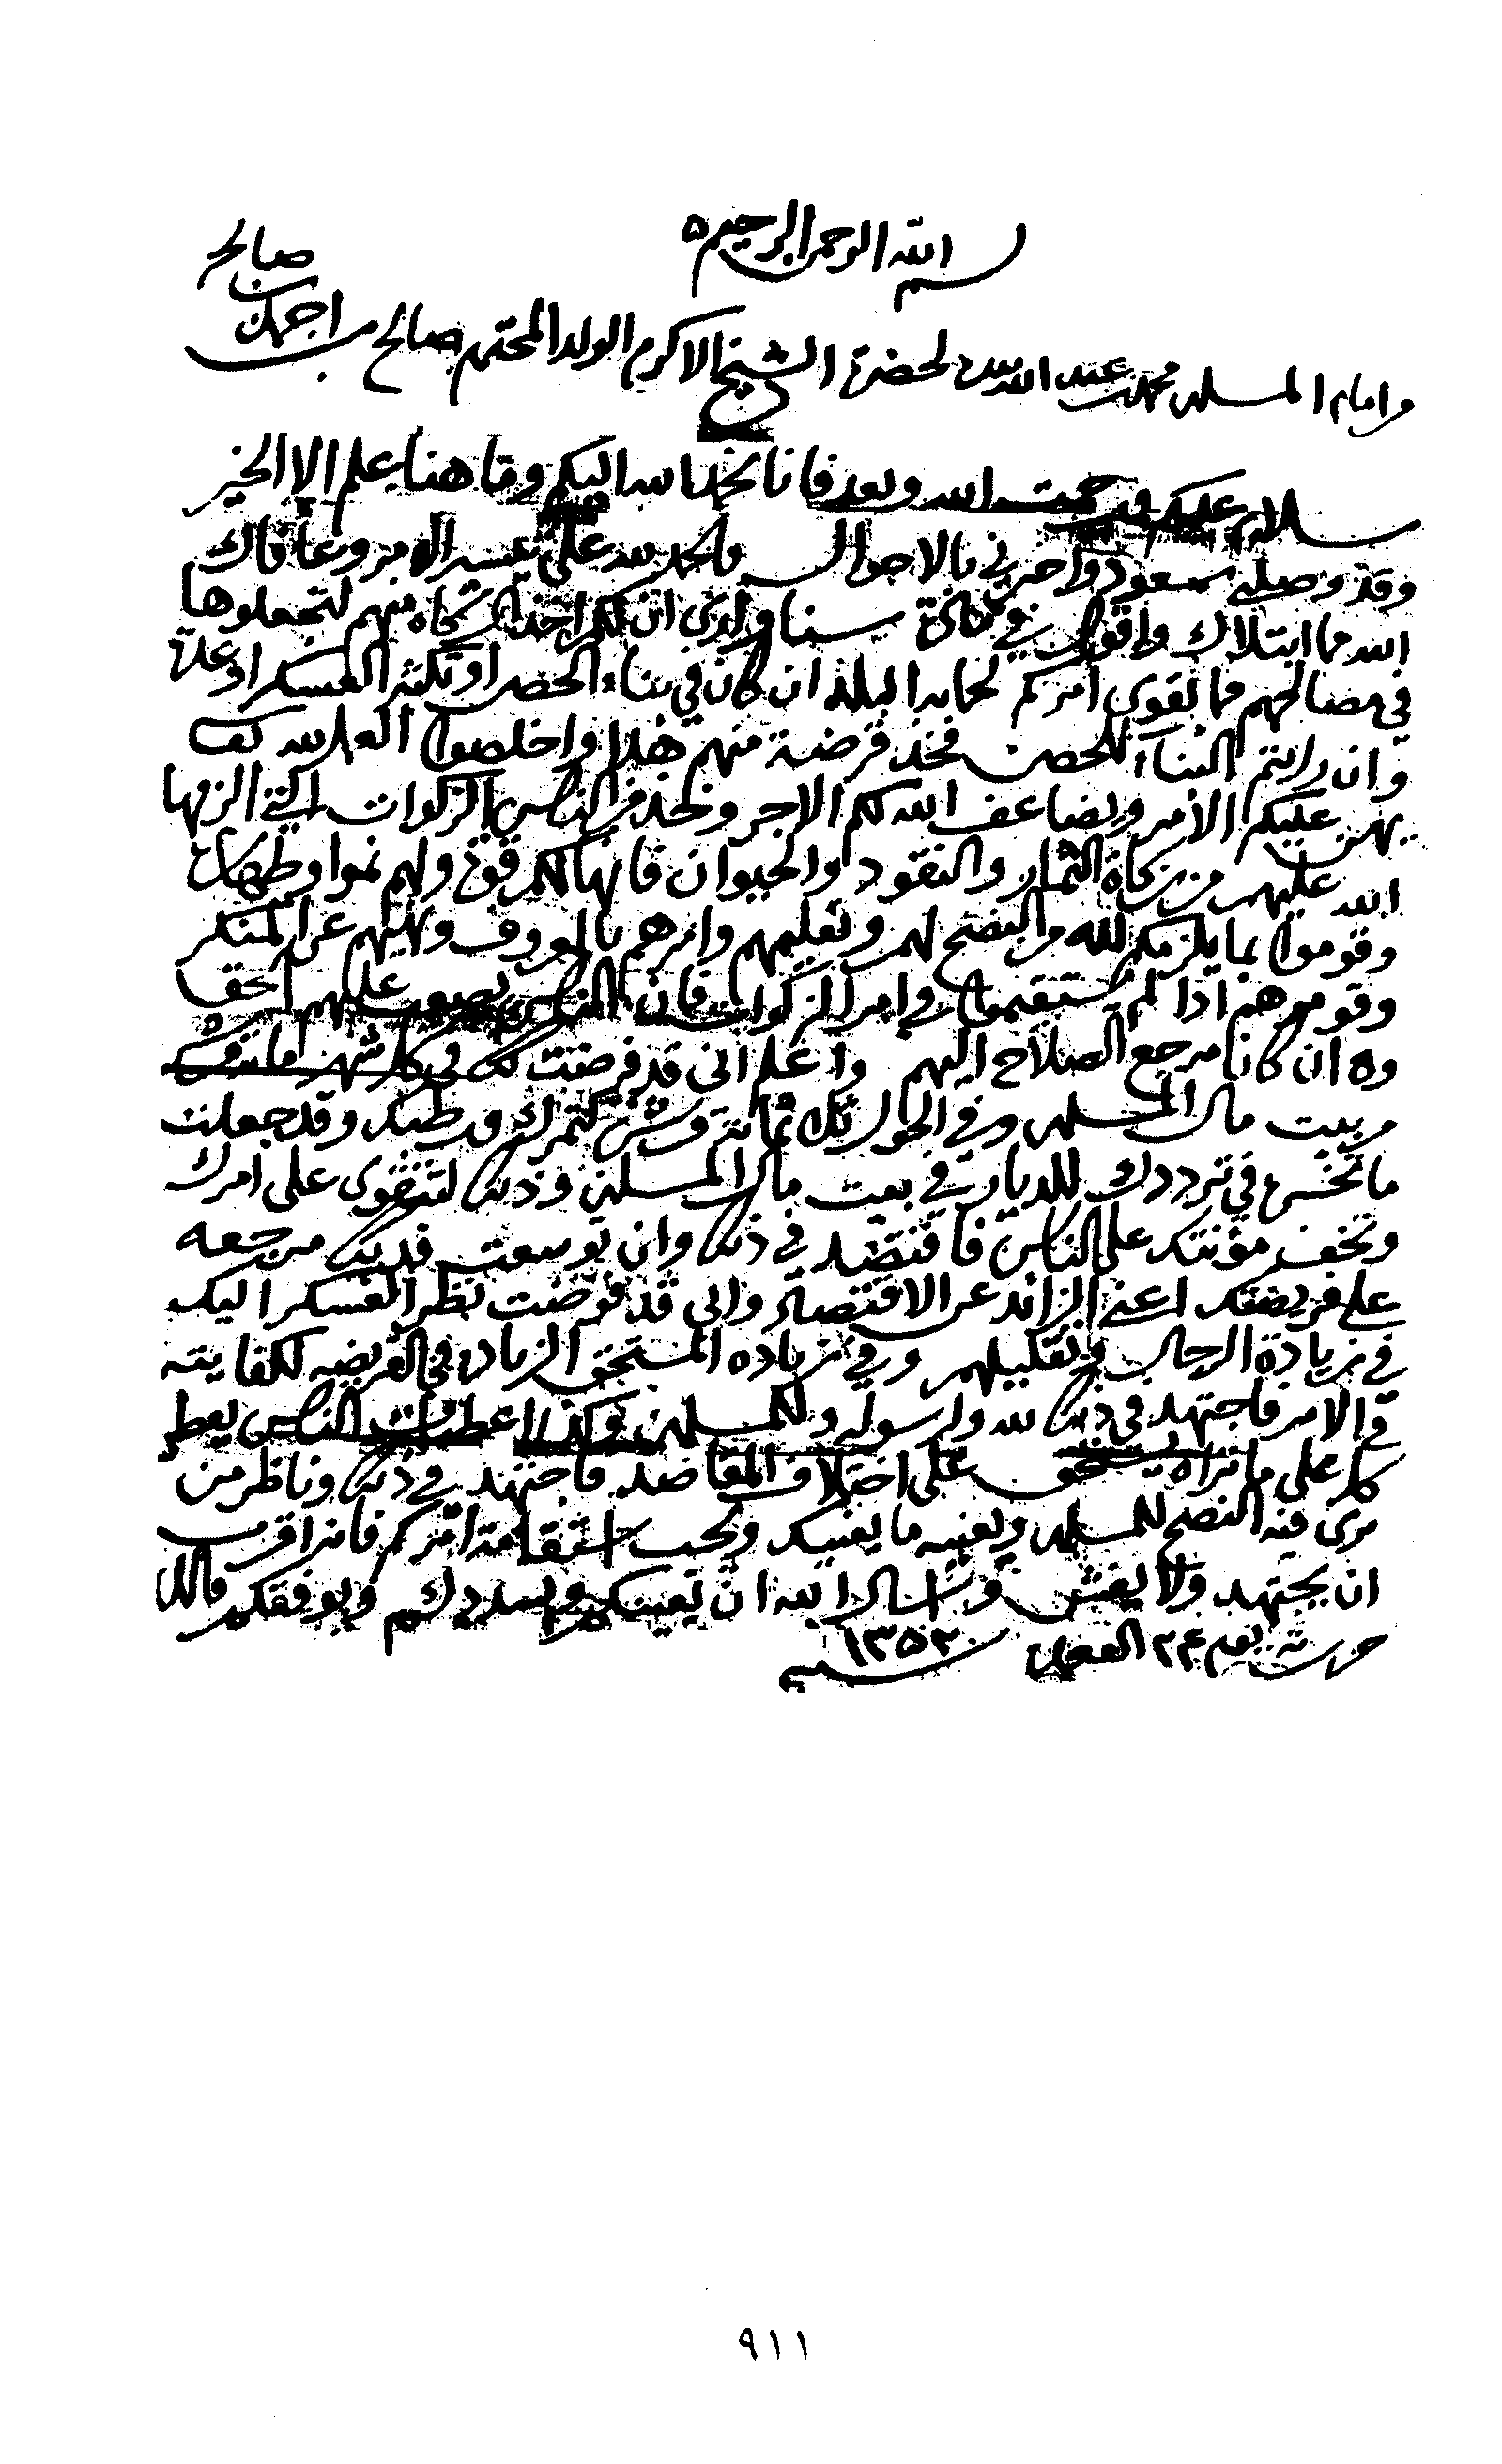 بسم الله الرحمن الرحيم
من امام المسلمين محمد بن عبدالله لحضرة الشيخ الاكرم الولد المحتر م صالح بن احمد بن
صالح
سلام عليكم ورحمت الله وبعد فانا نحمد الله اليكم وما هنا علم الا الخير
وقد وصل سعود واخبرني بالاحوال والحمد لله على تيسير الامر وعافاك
الله مما ابتلاك واقول في سنا وارى ان اخذ الزكاه منهم لتجعلوها
في مصالحهم مما يقوى امركم لحماية البلد ان كان في بناء الحصن او تكثير العسكر او
وان رايتم البناء للحصن فخذ قرضة منهم هذا واخلصوا العمل لله كف
يهن عليكم الامر ويضاعف الله لكم الاجر وخذ من الناس الزكوات التي الزمها
الله عليهم من زكاة الثمار والنقود والحيوان فانها لكم قوة ولهم نموا وطهارة
وقوموا بما يلزمكم لله من النصح لهم وتعليمهم وامرهم بالمعروف ونهيهم عن المنكر
وقوموهم اذا لم يستقيموا في امر الزكوات فان الناس يصعب عليهم الحق
وان كانا مرجع الصلاح اليهم واعلم انى قد فرضت لك في كل شهر مائة قرش
من بيت مال المسلمين وفي الحول ثمانية قروش وقد جعلت
ما تخسر في ترددك للديار في بيت مال المسلمين وذلك لتتقوى على امرك
وتخف مؤنتك على الناس فاقتصد في ذلك وان توسعت فذلك مرجعه
على فريضتك اعني الزائد عن الاقتصاد واني قد فوضت نظر العسكر اليك
في زيادة الرجال وتقليلهم وفي زياده المستحق الزيادة في الفريضه لكفايته
في الامر فاجتهد في ذلك لله ولرسوله وللمسلمين وكذا اعطيات الناس يعطى
كل على ما تراه يستحق على اختلاف المقاصد فاجتهد في ذلك وناظر من
ترى فيه النصح للمسلمين ويعنيه ما يعنيك ويحب استقامة امركم فانه اقرب
ان يجتهد ولا يغش ونسال الله ان يعينكم ويسددكم ويوفقكم والسلام
حررته يوم ٢٤ القعدة سنة ١٣٥٢
٩١١